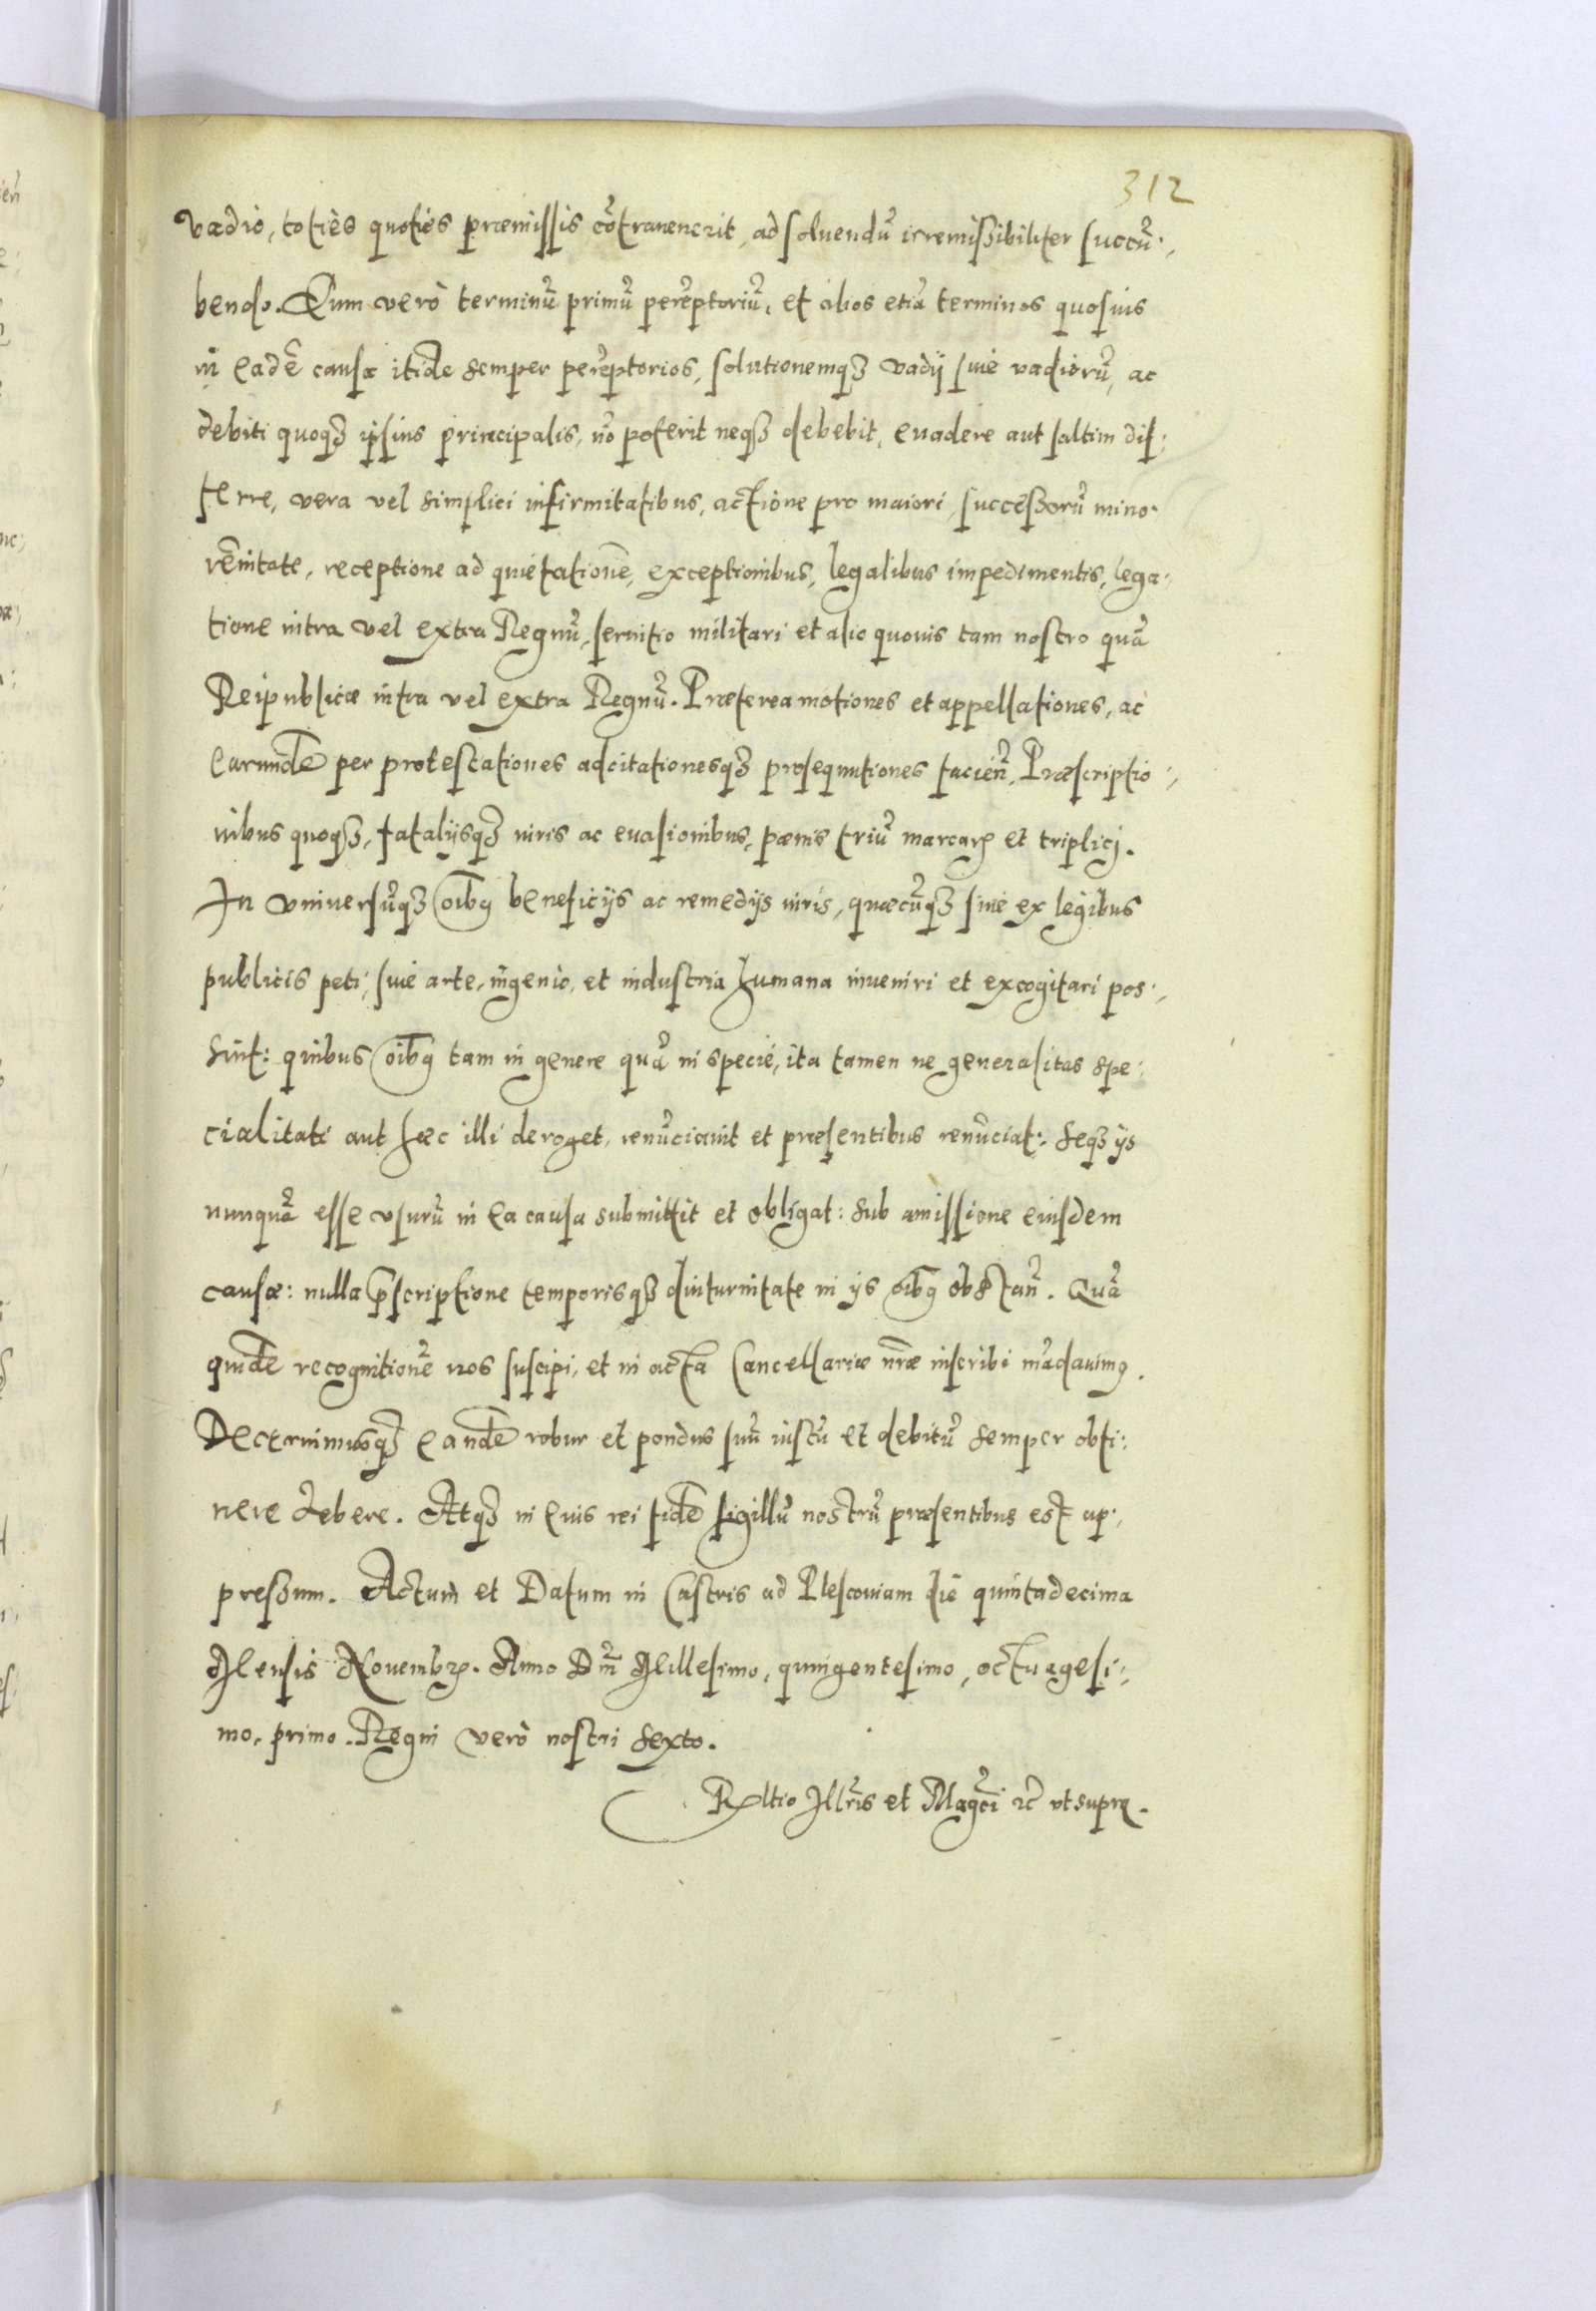 312
vadio, toties quoties præmissis cõtrauenerit, ad soluendũ irremissibiliter succũ:,
bendo. Cum verò terminũ primũ perẽptoriũ, et alios etiã terminos quosuis
in eadẽ causa itidẽ semper perẽptorios, solutionemqȝ vadij siue vadiorũ, ac
debiti quoqȝ ipsius principalis, nõ poterit neqȝ debebit, euadere aut saltim dif:
ferre, vera vel simplici infirmitatibus, actione pro maiori, successorũ mino-
rẽnitate, receptione ad quietationẽ, exceptionibus, legalibus impedimentis, lega:
tione intra vel extra Regnũ, seruitio militari et alio quouis tam nostro quã
Reipublicæ intra vel extra Regnũ. Præterea motiones et appellationes, ac
earundẽ per protestationes adcitationesqȝ prosequutiones faciẽn̄, Præscriptio:,
nibus quoqȝ, fatalijsqȝ iuris ac euasionibus, pænis triũ marcarꝝ et triplicj.
In vniuersũqȝ oĩbꝯ beneficijs ac remedijs iuris, quæcũqȝ siue ex legibus
publicis peti, siue arte, ingenio, et industria humana inueniri et excogitari pos:,
sint: quibus oĩbꝯ tam in genere quã in specie, ita tamen ne generalitas spe:
cialitati aut hæc illi deroget, renũciauit et præsentibus renũciat: seqȝ ijs
nunquã esse vsurũ in ea causa submittit et obligat: sub amissione eiusdem
causæ: nulla p̄scriptione temporisqȝ diuturnitate in ijs oĩbꝯ obstan̄. Quã
quidẽ recognitionẽ nos suscipi, et in acta Cancellariæ nr̄æ inscribi mãdauimꝯ.
Decernimusqȝ eandẽ robur et pondus suũ iustũ et debitũ semper obti:
nere debere. Atqȝ in eius rei fidẽ sigillũ nostrũ præsentibus est ap:,
pressum. Actum et Datum in Castris ad Plescouiam die quintadecima
Mensis Nouembrꝭ. Anno Dn̄i Millesimo, quingentesimo, octuagesi:,
mo, primo. Regni verò nostri sexto.
Rltio Illr̄is et Magc̄i ꝛc̄ vt supra.